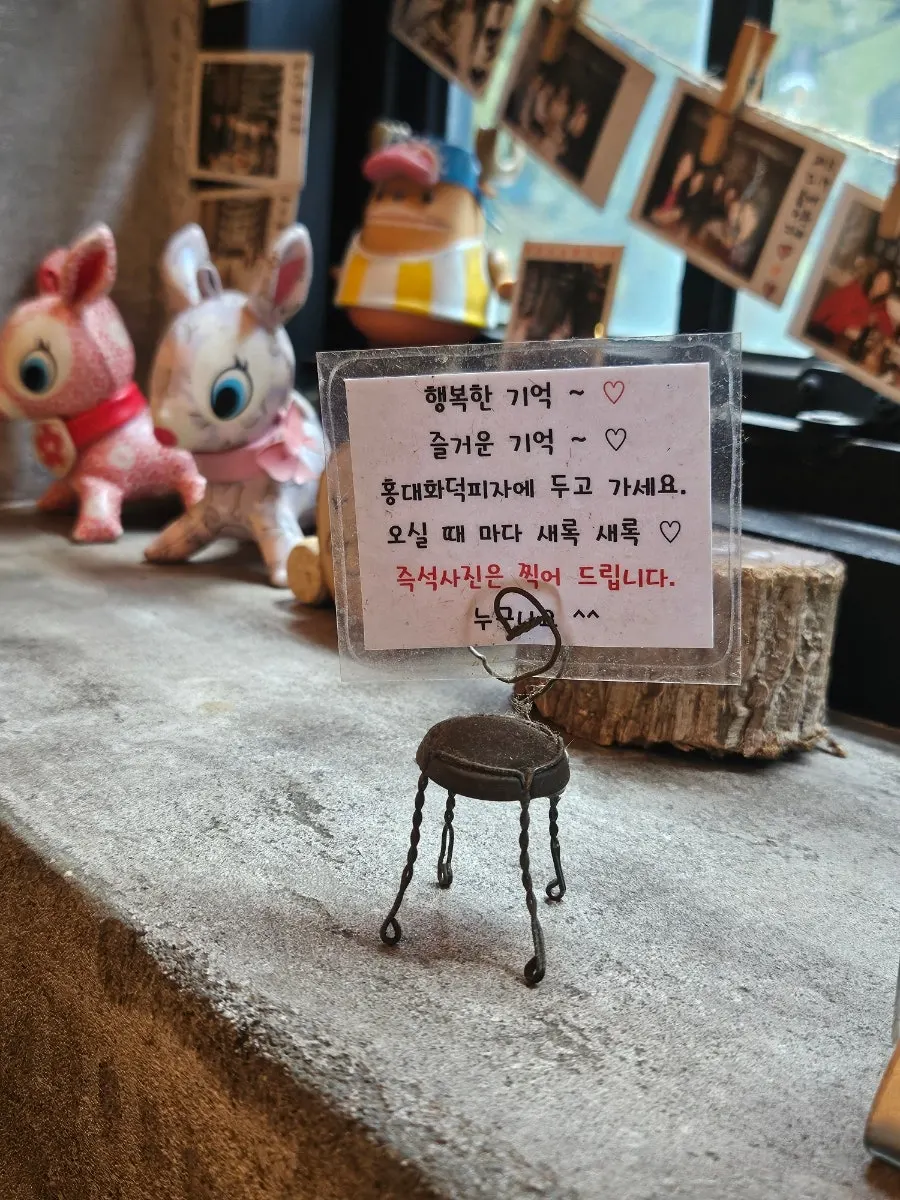 행복한 기억 ~ ♡
즐거운 기억 ~ ♡
홍대화덕피자에 두고 가세요.
오실 때 마다 새록 새록 ♡
즉석사진은 찍어 드립니다.
^^